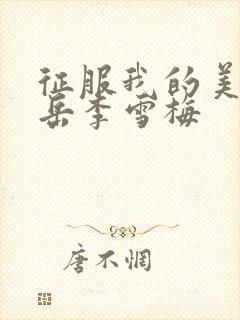 征服我的美
岳李雪梅
唐不惘